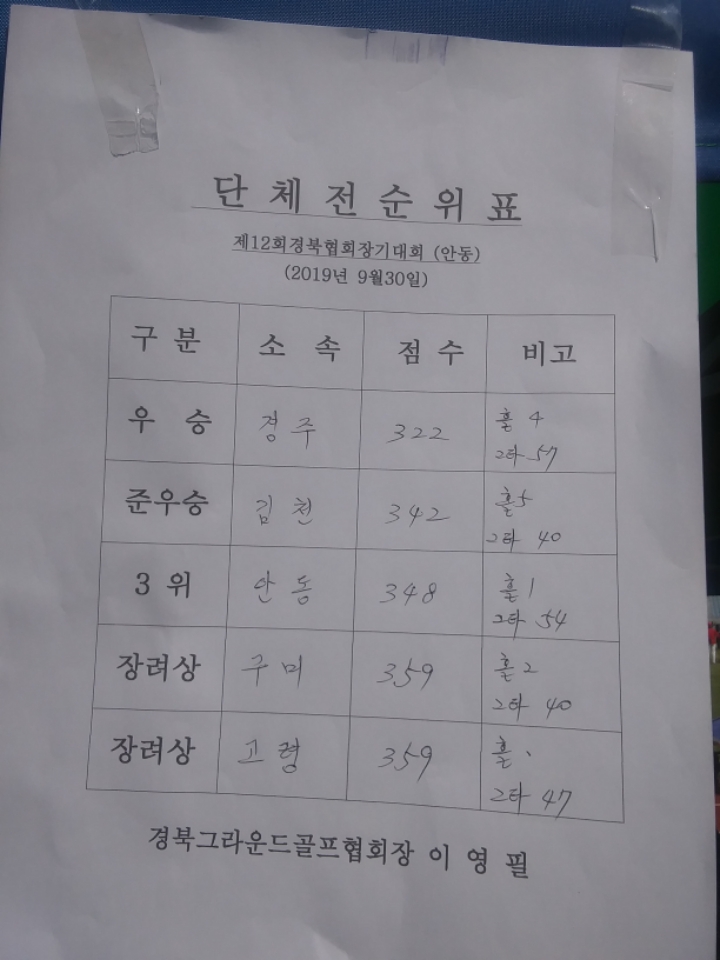 단체전순위표
제12회경북협회장기대회 (안동)
(2019년 9월30일)
구 분 소 속 점 수 비고
우 승 경주 322 홀 4
2타 57
준우승 김천 342 홀5
2타 40
3 위 안동 348 홀 1
2타 54
장려상 구미 359 홀 2
2타 40
장려상 고령 359 홀
2타 47
경북그라운드골프협회장 이 영 필